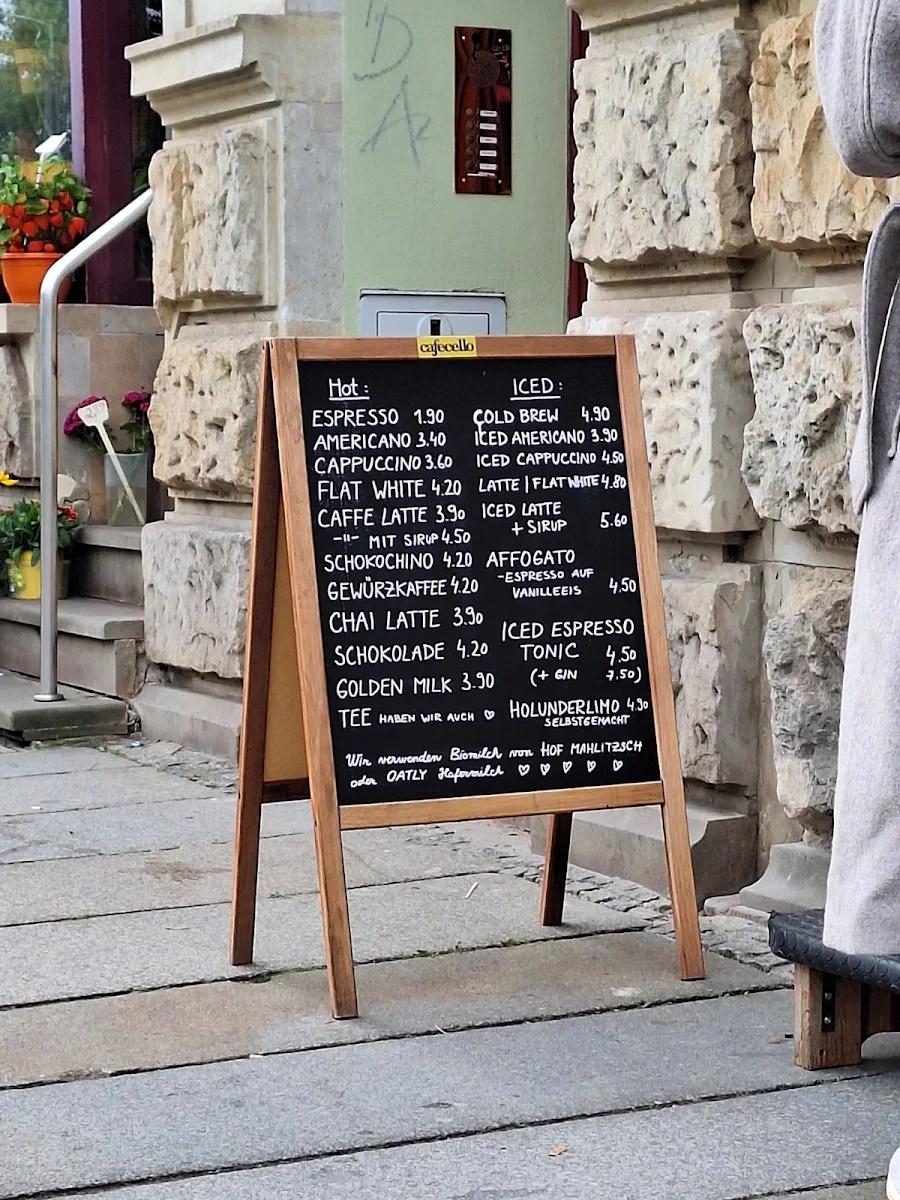 DA
cafecello
Hot:
ESPRESSO 1.90
AMERICANO 3.40
CAPPUCCINO 3.60
FLAT WHITE 4.20
CAFFE LATTE 3.90
-"- MIT SIRUP 4.50
SCHOKOCHINO 4.20
GEWÜRZKAFFEE 4.20
CHAI LATTE 3.90
SCHOKOLADE 4.20
GOLDEN MILK 3.90
TEE HABEN WIR AUCH ♡
ICED:
COLD BREW 4.90
ICED AMERICANO 3.90
ICED CAPPUCCINO 4.50
LATTE | FLAT WHITE 4.80
ICED LATTE
+ SIRUP 5.60
AFFOGATO
-ESPRESSO AUF
VANILLEEIS 4.50
ICED ESPRESSO
TONIC 4.50
(+ GIN 7.50)
HOLUNDERLIMO 4.90
SELBSTGEMACHT
Wir verwenden Biomilch von HOF MAHLITZSCH
oder OATLY Hafermilch ♡ ♡ ♡ ♡ ♡